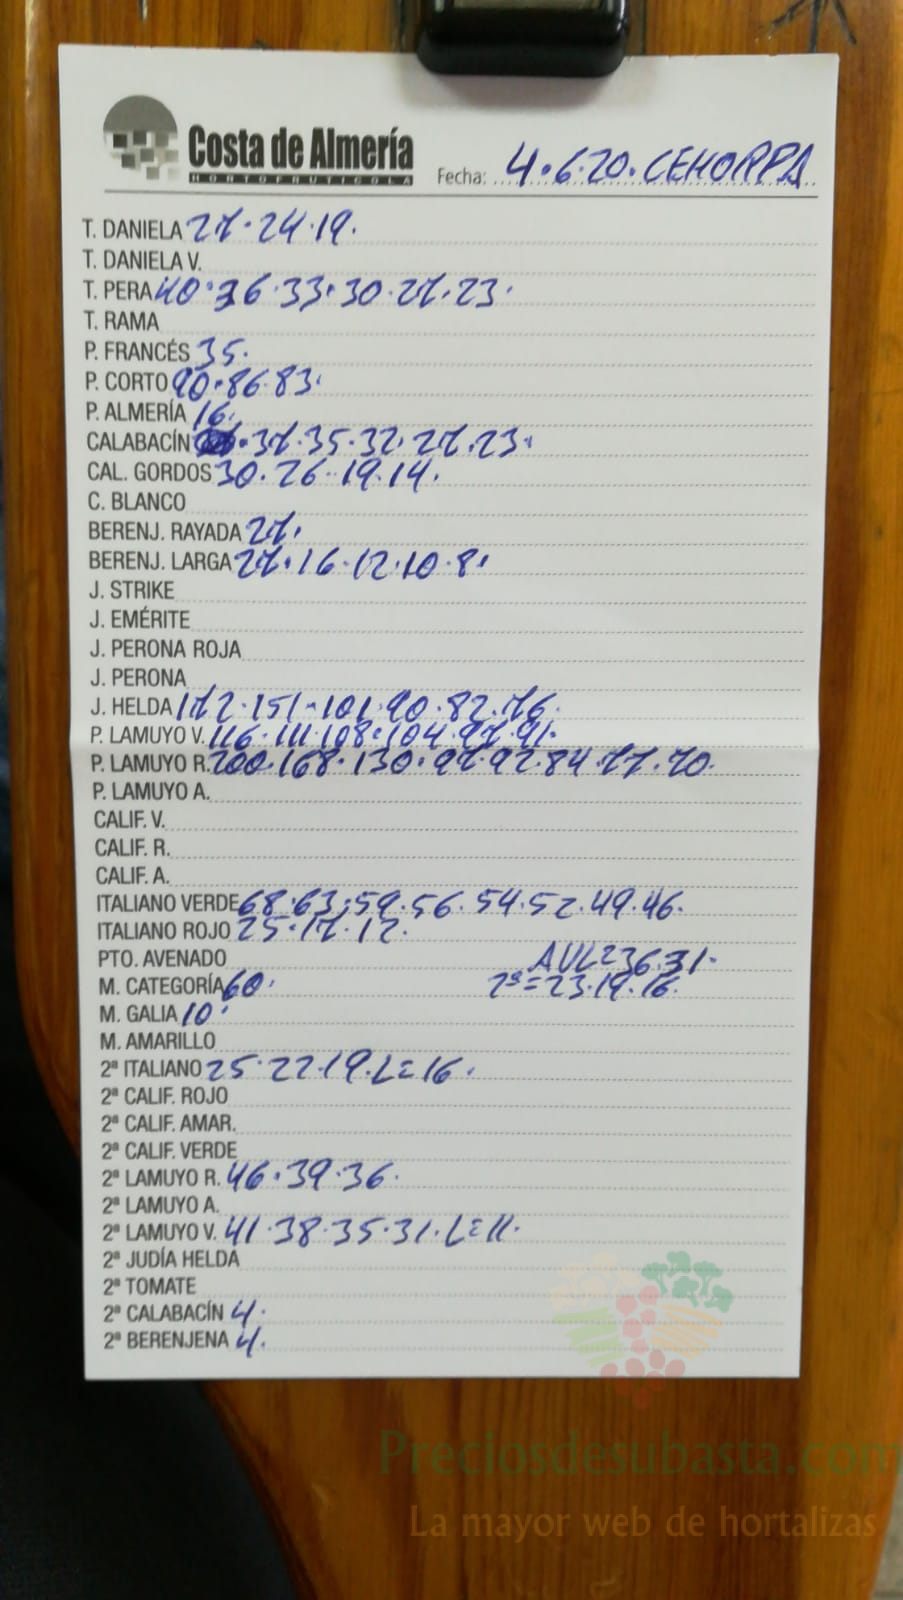 Costa de Almería
HORTOFRUTICOLA
Fecha: 4.6.20. CEHORPA
T. DANIELA 27.24.19.
T. DANIELA V.
T. PERA 40.36.33.30.27.23.
T. RAMA
P. FRANCÉS 35.
P. CORTO 90.86.83.
P. ALMERÍA 16.
CALABACÍN .37.35.32.27.23.
CAL. GORDOS 30.26.19.14.
C. BLANCO
BERENJ. RAYADA 27.
BERENJ. LARGA 27.16.12.10.8.
J. STRIKE
J. EMÉRITE
J. PERONA ROJA
J. PERONA
J. HELDA 172.151.101.90.82.76.
P. LAMUYO V. 116.111.108.104.97.91.
P. LAMUYO R. 200.168.130.97.92.84.77.70.
P. LAMUYO A.
CALIF. V.
CALIF. R.
CALIF. A.
ITALIANO VERDE 68.63.59.56.54.52.49.46.
ITALIANO ROJO 25.17.12.
PTO. AVENADO AVL=36.31.
M. CATEGORÍA 60. 2ª=23.19.16.
M. GALIA 10.
M. AMARILLO
2ª ITALIANO 25.22.19.L=16.
2ª CALIF. ROJO
2ª CALIF. AMAR.
2ª CALIF. VERDE
2ª LAMUYO R. 46.39.36.
2ª LAMUYO A.
2ª LAMUYO V. 41.38.35.31.L=11.
2ª JUDÍA HELDA
2ª TOMATE
2ª CALABACÍN 4.
2ª BERENJENA 4.
Preciosdesubasta.com
La mayor web de hortalizas